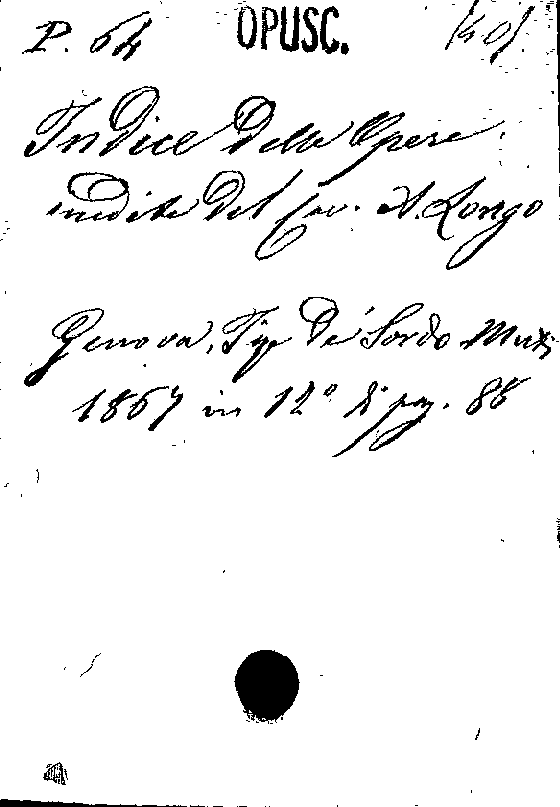 P. 64 OPUSC.
Indice delle Opere
inedite del Cav. A. Longo
Genova, Tip. de' Sordo Muti
1867 in 12° di pag. 88